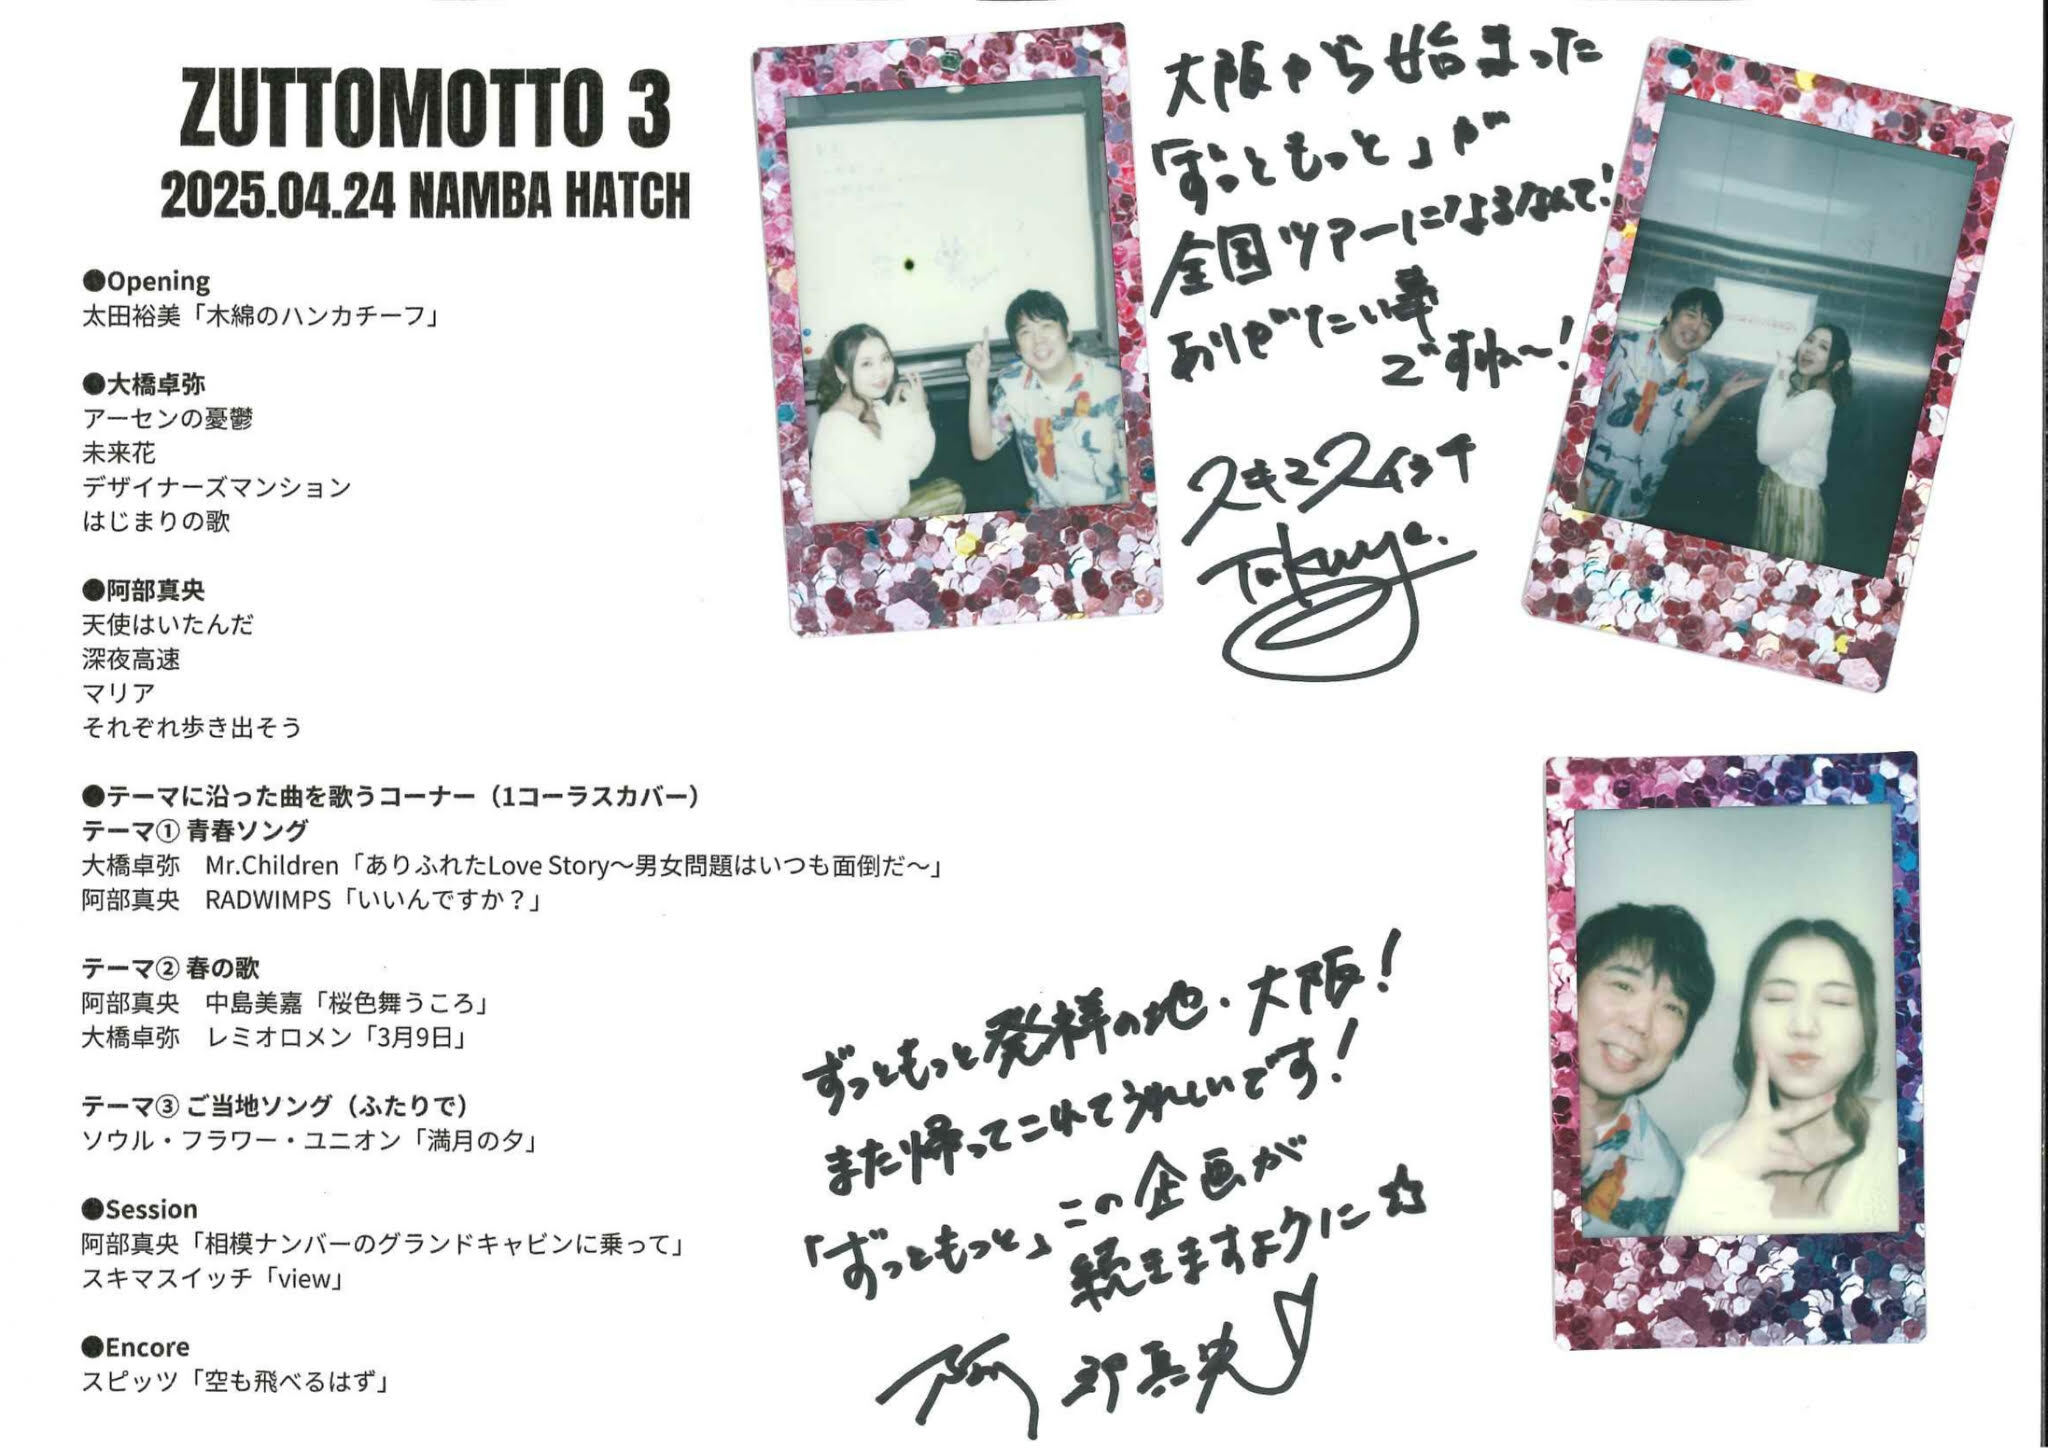 ZUTTOMOTTO 3
2025.04.24 NAMBA HATCH
●Opening
太田裕美「木綿のハンカチーフ」
●大橋卓弥
アーセンの憂鬱
未来花
デザイナーズマンション
はじまりの歌
●阿部真央
天使はいたんだ
深夜高速
マリア
それぞれ歩き出そう
●テーマに沿った曲を歌うコーナー（1コーラスカバー）
テーマ① 青春ソング
大橋卓弥　Mr.Children「ありふれたLove Story～男女問題はいつも面倒だ～」
阿部真央　RADWIMPS「いいんですか？」
テーマ② 春の歌
阿部真央　中島美嘉「桜色舞うころ」
大橋卓弥　レミオロメン「3月9日」
テーマ③ ご当地ソング（ふたりで）
ソウル・フラワー・ユニオン「満月の夕」
●Session
阿部真央「相模ナンバーのグランドキャビンに乗って」
スキマスイッチ「view」
●Encore
スピッツ「空も飛べるはず」
大阪から始まった
「ずっともっと」が
全国ツアーになるなんて!
ありがたい事
ですね〜!
スキマスイッチ
Takuya.
ずっともっと発祥の地・大阪!
また帰ってこれてうれしいです!
「ずっともっと」この企画が
続きますようクに☆
阿部真央♡